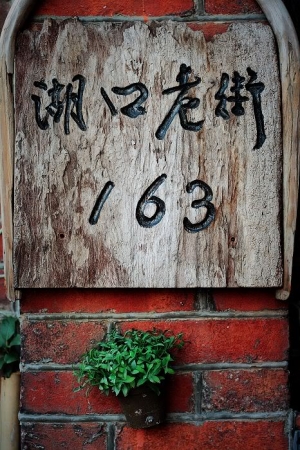 湖口老街
163